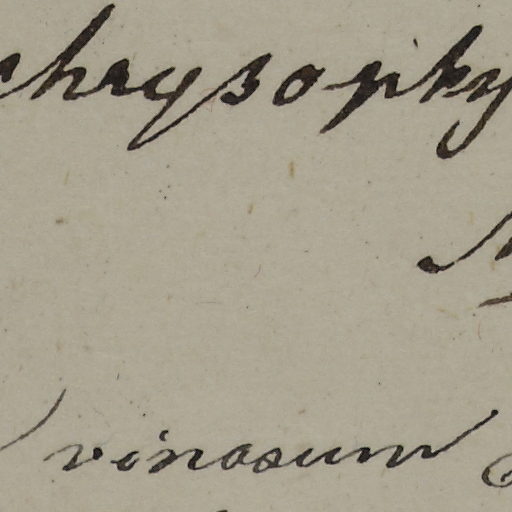 chrysophy
vinosum